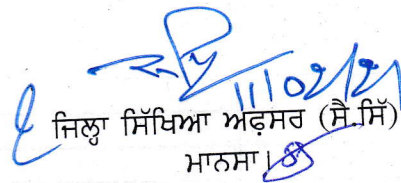 11/02/21
ਜਿਲ੍ਹਾ ਸਿੱਖਿਆ ਅਫ਼ਸਰ (ਸੈ.ਸਿੱ)
ਮਾਨਸਾ।